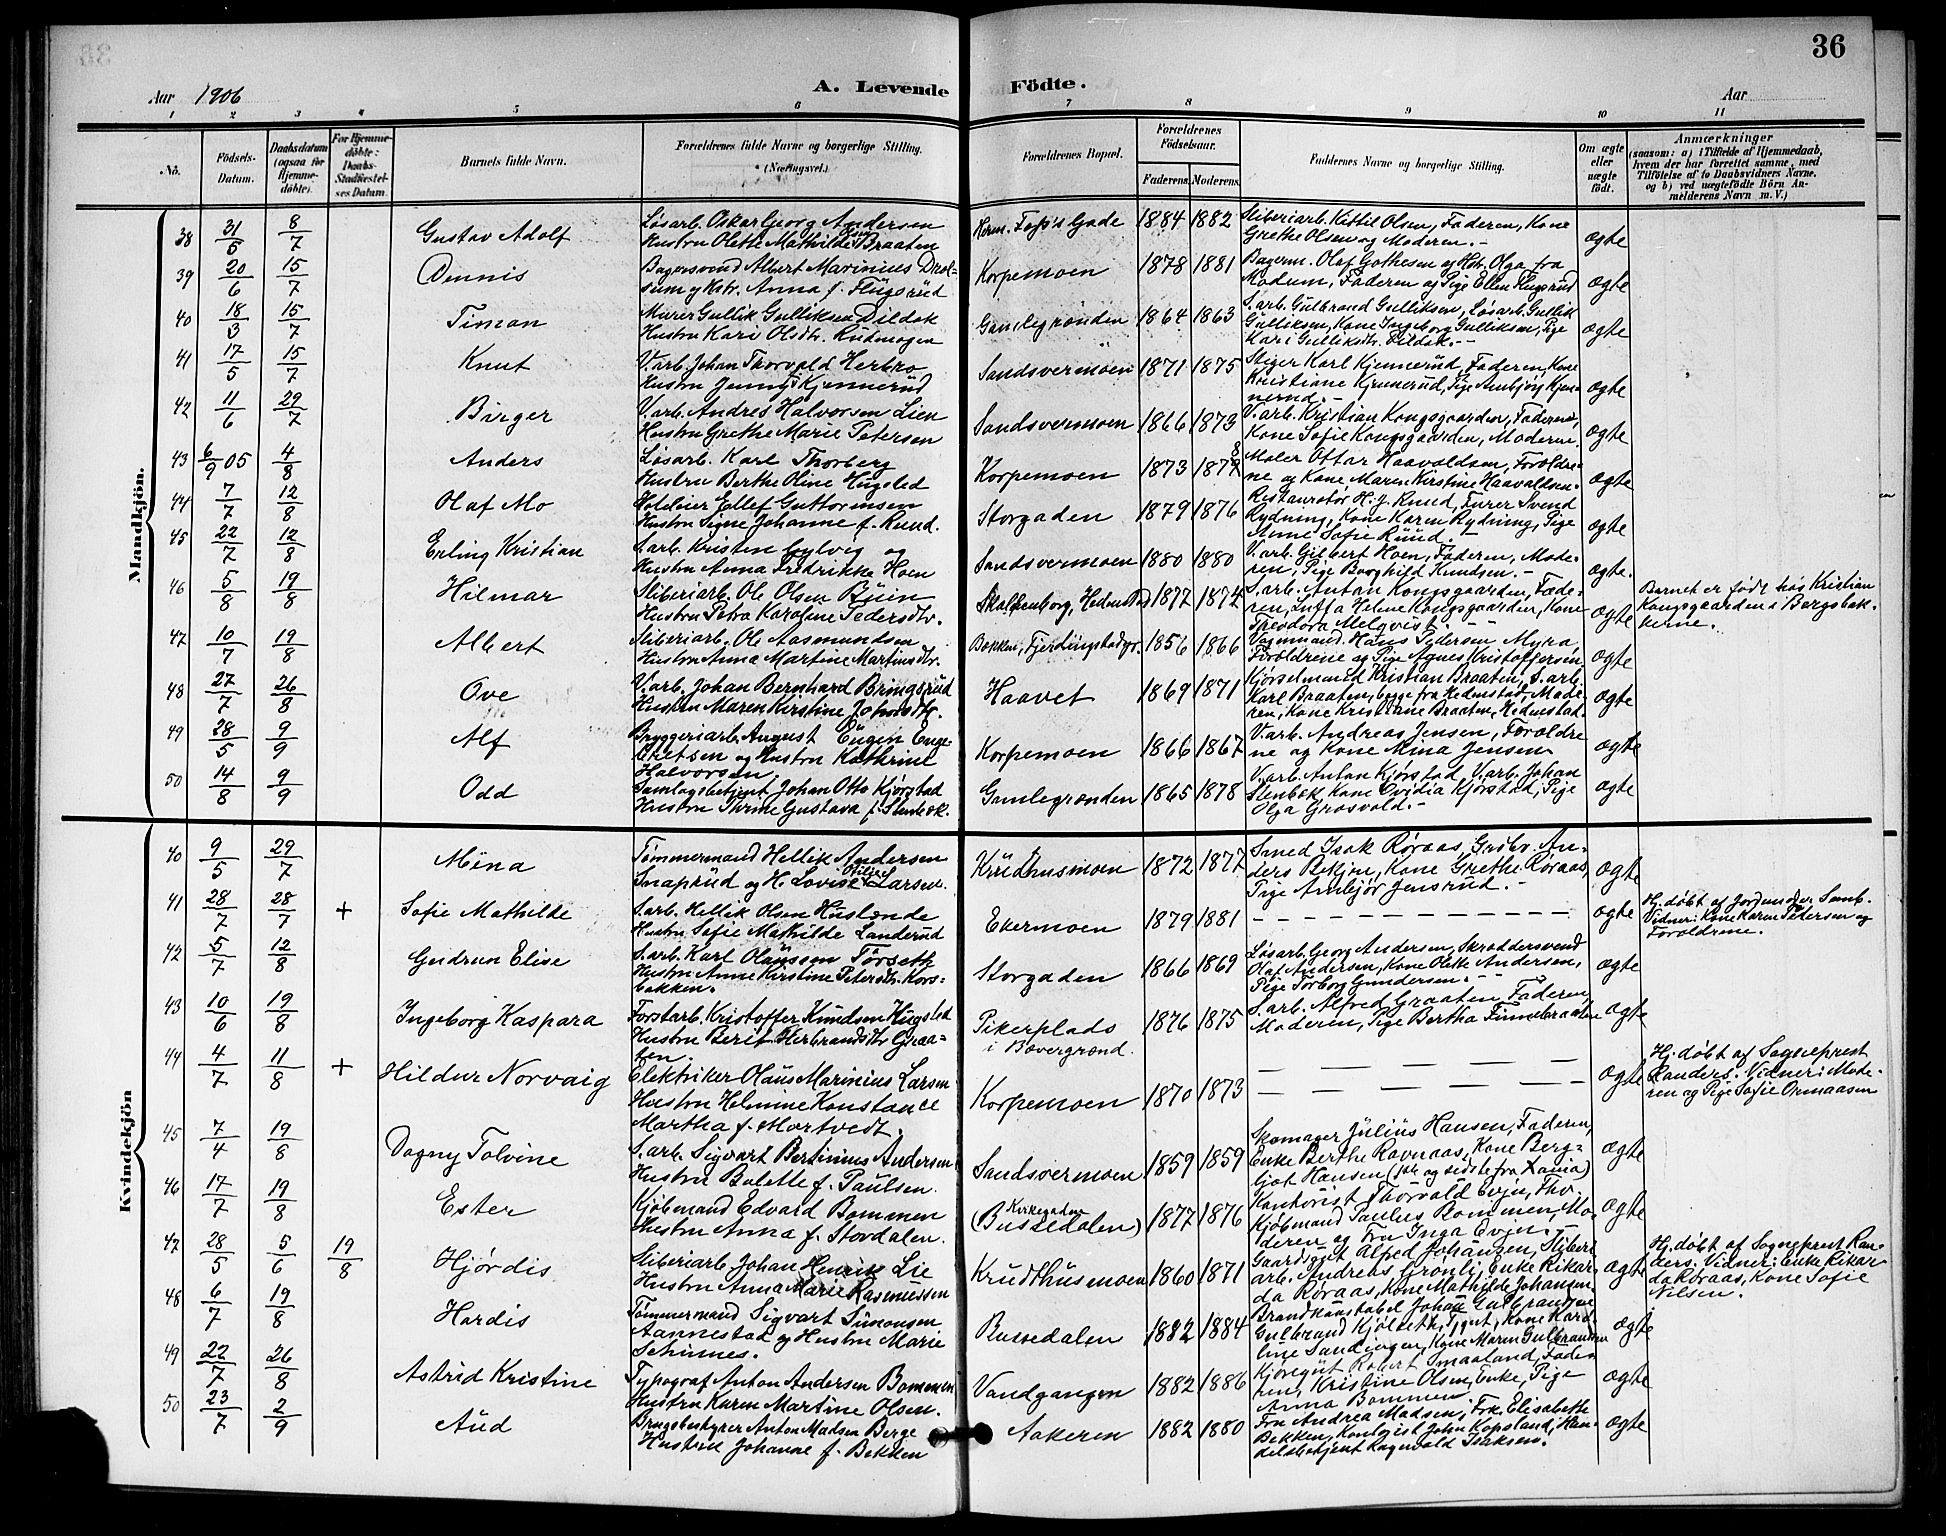 36
Aar 1906
A. Levende Födte.
Aar
1 2 3 4 5 6 7 8 9 10 11
No.
Födsels-Datum.
Daabsdatum (ogsaa for Hjemme-döbte).
For Hjemme-döbte: Daabs-Stadfæstelses Datum.
Barnets fulde Navn.
Forældrenes fulde Navne og borgerlige Stilling. (Næringsvei.)
Forældrenes Bopæl.
Forældrenes Födselsaar.
Faderens. Moderens.
Faddernes Navne og borgerlige Stilling.
Om ægte eller uægte födt.
Anmærkninger
(saasom: a) i Tilfælde af Hjemmedaab, hvem der har forrettet samme, med Tilföielse af to Daabsvidners Navne, og b) ved uægtefödte Börn Anmelderens Navn m. V.)
Mandkjön.
38 31/5 8/7 Gustav Adolf
Løsarb. Oskar Georg Andersen
Hustru Olette Mathilde Braaten
Herm. Foss's Gade 1884 1882
Sliberiarb. Kittil Olsen, Faderen, Kone
Grethe Olsen og Moderen.-
ægte
39 20/6 15/7 Dennis
Bagersvend Albert Marinius Drol-
sum og Hstr. Anna f. Flugsrud
Korpemoen 1878 1881
Bagerm. Olaf Gothesen og Hstr. Olga fra
Modum, Faderen og Pige Ellen Flugsrud
ægte
40 18/3 15/7 Timan
Murer Gullik Gulliksen Dildak
Hustru Kari Olsdtr. Rudmogen
Gamlegrønden 1864 1863
S.arb. Gulbrand Gulliksen, Løsarb. Gullik
Gulliksen, Kone Ingeborg Gulliksen, Pige
Kari Gulliksdtr. Dildak.-
ægte
41 17/5 15/7 Knut
V.arb. Johan Thorvald Herbro
Hustru Jenny Kjennerud
Sandsvermoen 1871 1875
Stiger Karl Kjennerud, Faderen, Kone
Kristiane Kjennerud, Pige Ambjørg Kjen-
nerud.-
ægte
42 11/6 29/7 Birger
V.arb. Andres Halvorsen Lien
Hustru Grethe Marie Petersen
Sandsvermoen 1866 1873
V.arb. Kristian Kongsgaarden, Faderen,
Kone Sofie Kongsgaarden, Moderen.
ægte
43 6/9 05 4/8 Anders
Løsarb. Karl Thorberg
Hustru Berthe Oline Hugsted
Korpemoen 1873 187
Maler Ottar Haavaldsen, Forældre-
ne og Kone Maren Kirstine Haavaldsen.
ægte
44 7/7 12/8 Olaf Mo
Hoteleier Ellef Guttormsen
Hustru Signe Johanne f. Ruud.
Storgaden 1879 1876
Restauratør H. J. Ruud, Furer Svend
Rydning, Kone Karen Rydning, Pige
Anne Sofie Ruud.-
ægte
45 22/7 12/8 Erling Kristian
S.arb. Kristen Gylvig og
Hustru Anna Fredrikke Hoen
Sandsvermoen 1880 1880
V.arb. Gilbert Hoen, Faderen, Mode-
ren, Pige Borghild Knudsen.-
ægte.
46 5/8 19/8 Hilmar
Sliberiarb. Ole Olsen Buin
Hustru Petra Karoline Pedersdtr.
Skalkenborg, Hedenstad 1877 1874
S.arb. Anton Kongsgaarden, Fade-
ren, Helene Kongsgaarden, Kone
Theodora Melqvist.-
ægte
Barnet er født hos Kristian
Kongsgaarden i Bergsbak-
kerne.
47 10/7 19/8 Albert
Sliberiarb. Ole Aasmundsen
Hustru Anna Martine Martinsdtr.
Bakken, Fjerdingstadgr. 1856 1866
Vognmand Hans Pedersen Myra,
Forældrene og Pige Agnes Kristoffersen.
ægte
48 27/7 26/8 Ove
V.arb. Johan Bernhard Bringsrud
Hustru Maren Kirstine Johnsdtr.
Haavet 1869 1871
Kjørselmand Kristian Braaten, S.arb.
Karl Braaten, begge fra Hedenstad, Mode-
ren, Kone Kristiane Braaten, Hedenstad.
ægte
49 28/5 9/9 Alf
Bryggeriarb. August Eugen Enge-
bretsen og Hustru Kathrine
Halvorsen.
Korpemoen 1866 1867
V.arb. Andreas Jensen, Forældre
ne og Kone Mina Jensen
ægte
50 14/8 9/9 Odd
Samlagsbetjent Johan Otto Kjørstad
Hustru Thrine Gustava f. Stenbek.
Gamlegrønden 1865 1878
V.arb. Anton Kjørstad, V.arb. Johan
Stenbek, Kone Ovidia Kjørstad, Pige
Olga Grosvold.-
ægte
Kvindekjön
40 9/5 29/7 Mina
Tømmermand Hellik Andersen
Snaprud og H. Lovise Otilie Larsen.
Krudthusmoen 1872 1877
Smed Isak Røraas, Grubv. An-
ders Bekjen, Kone Grethe Røraas,
Pige Ambjør Jensrud.-
ægte
41 28/7 28/7 + Sofie Mathilde
S.arb. Hellik Olsen Huslende
Hustru Sofie Mathilde Landerud
Ekermoen 1879 1881
ægte
Hj. døbt af Jordemoder Samb.
Vidner: Kone Karen Pedersen og
Forældrene.
42 5/7 12/8 Gudrun Elise
S.arb. Karl Olaussen Torseth
Hustru Anne Kirstine Petersdtr. Kors-
bakken.
Storgaden 1866 1869
Løsarb. Georg Andersen, Skræddersvend
Olaf Andersen, Kone Olette Andersen,
Pige Torborg Gundersen.-
ægte
43 10/6 19/8 Ingeborg Kaspara
Forstarb. Kristoffer Knudsen Hugsted
Hustru Berit Herbrandsdtr. Graa-
ten.
Pikerplads
i Bævergrænd. 1876 1875
S.arb. Alfred Graaten, Faderen,
Moderen, Pige Bertha Finnebraaten
ægte
44 4/7 11/8 + Hildur Norvaig
Elektriker Olaus Marinius Larsen
Hustru Helmine Konstance
Martha f. Mortvedt.
Korpemoen 1870 1873
ægte
Hj. døbt af Sogneprest
Randers. Vidner: Mode-
ren og Pige Sofie Ormaasen
45 7/4 19/8 Dagny Tolvine
S.arb. Sigvart Bertinius Andersen
Hustru Bolette f. Paulsen.
Sandsvermoen 1859 1859
Skomager Julius Hansen, Faderen,
Enke Berthe Ravnaas, Kone Berg-
ljot Hansen (1ste og sidste fra Xania)
ægte
46 17/7 19/8 Ester
Kjøbmand Edvard Bommen
Hustru Anna f. Stordalen.
Kirkegaden
(Bussedalen) 1877 1876
Kontorist Thorvald Evju, Thv.
Kjøbmand Paulus Bommen, Mo-
deren og Fru Inga Evju.-
ægte
47 28/5 5/6 19/8 Hjørdis
Sliberiarb. Johan Henrik Lie
Hustru Anna Marie Rasmussen
Krudthusmoen 1860 1871
Gaardsgut Alfred Johansen, Sliberi
arb. Andreas Grønli, Enke Rikar-
da Røraas, Kone Mathilde Johansen
ægte
Hj. døbt af Sogneprest Ran-
ders. Vidner: Enke Rikar
da Røraas, Kone Sofie
Nilsen.
48 6/7 19/8 Hardis
Tømmermand Sigvart Simonsen
Aannestad og Hustru Marie
Schinnes.
Bussedalen 1882 1884
Brandkonstabel Johan Gulbrandsen
Gulbrand Kjølseth, Tjgut, Kone Karo-
line Sandungen, Kone Maren Gulbrandsen
ægte
49 22/7 26/8 Astrid Kristine
Typograf Anton Andersen Bommen
Hustru Karen Martine Olsen.
Vandgangen 1882 1886
Kjøregut Robert Smaaland, Fade-
ren, Kristine Olsen, Enke, Pige
Anna Bommen
ægte
50 23/7 2/9 Aud
Brugsbestyrer Anton Madsen Berge
Hustru Johanne f. Bekken
Aakeren 1882 1880
Fru Andrea Madsen, Frk. Elisabeth
Bekken, Kontorist John Kopsland, Han-
delsbetjent Ragnvald Isaksen.
ægte